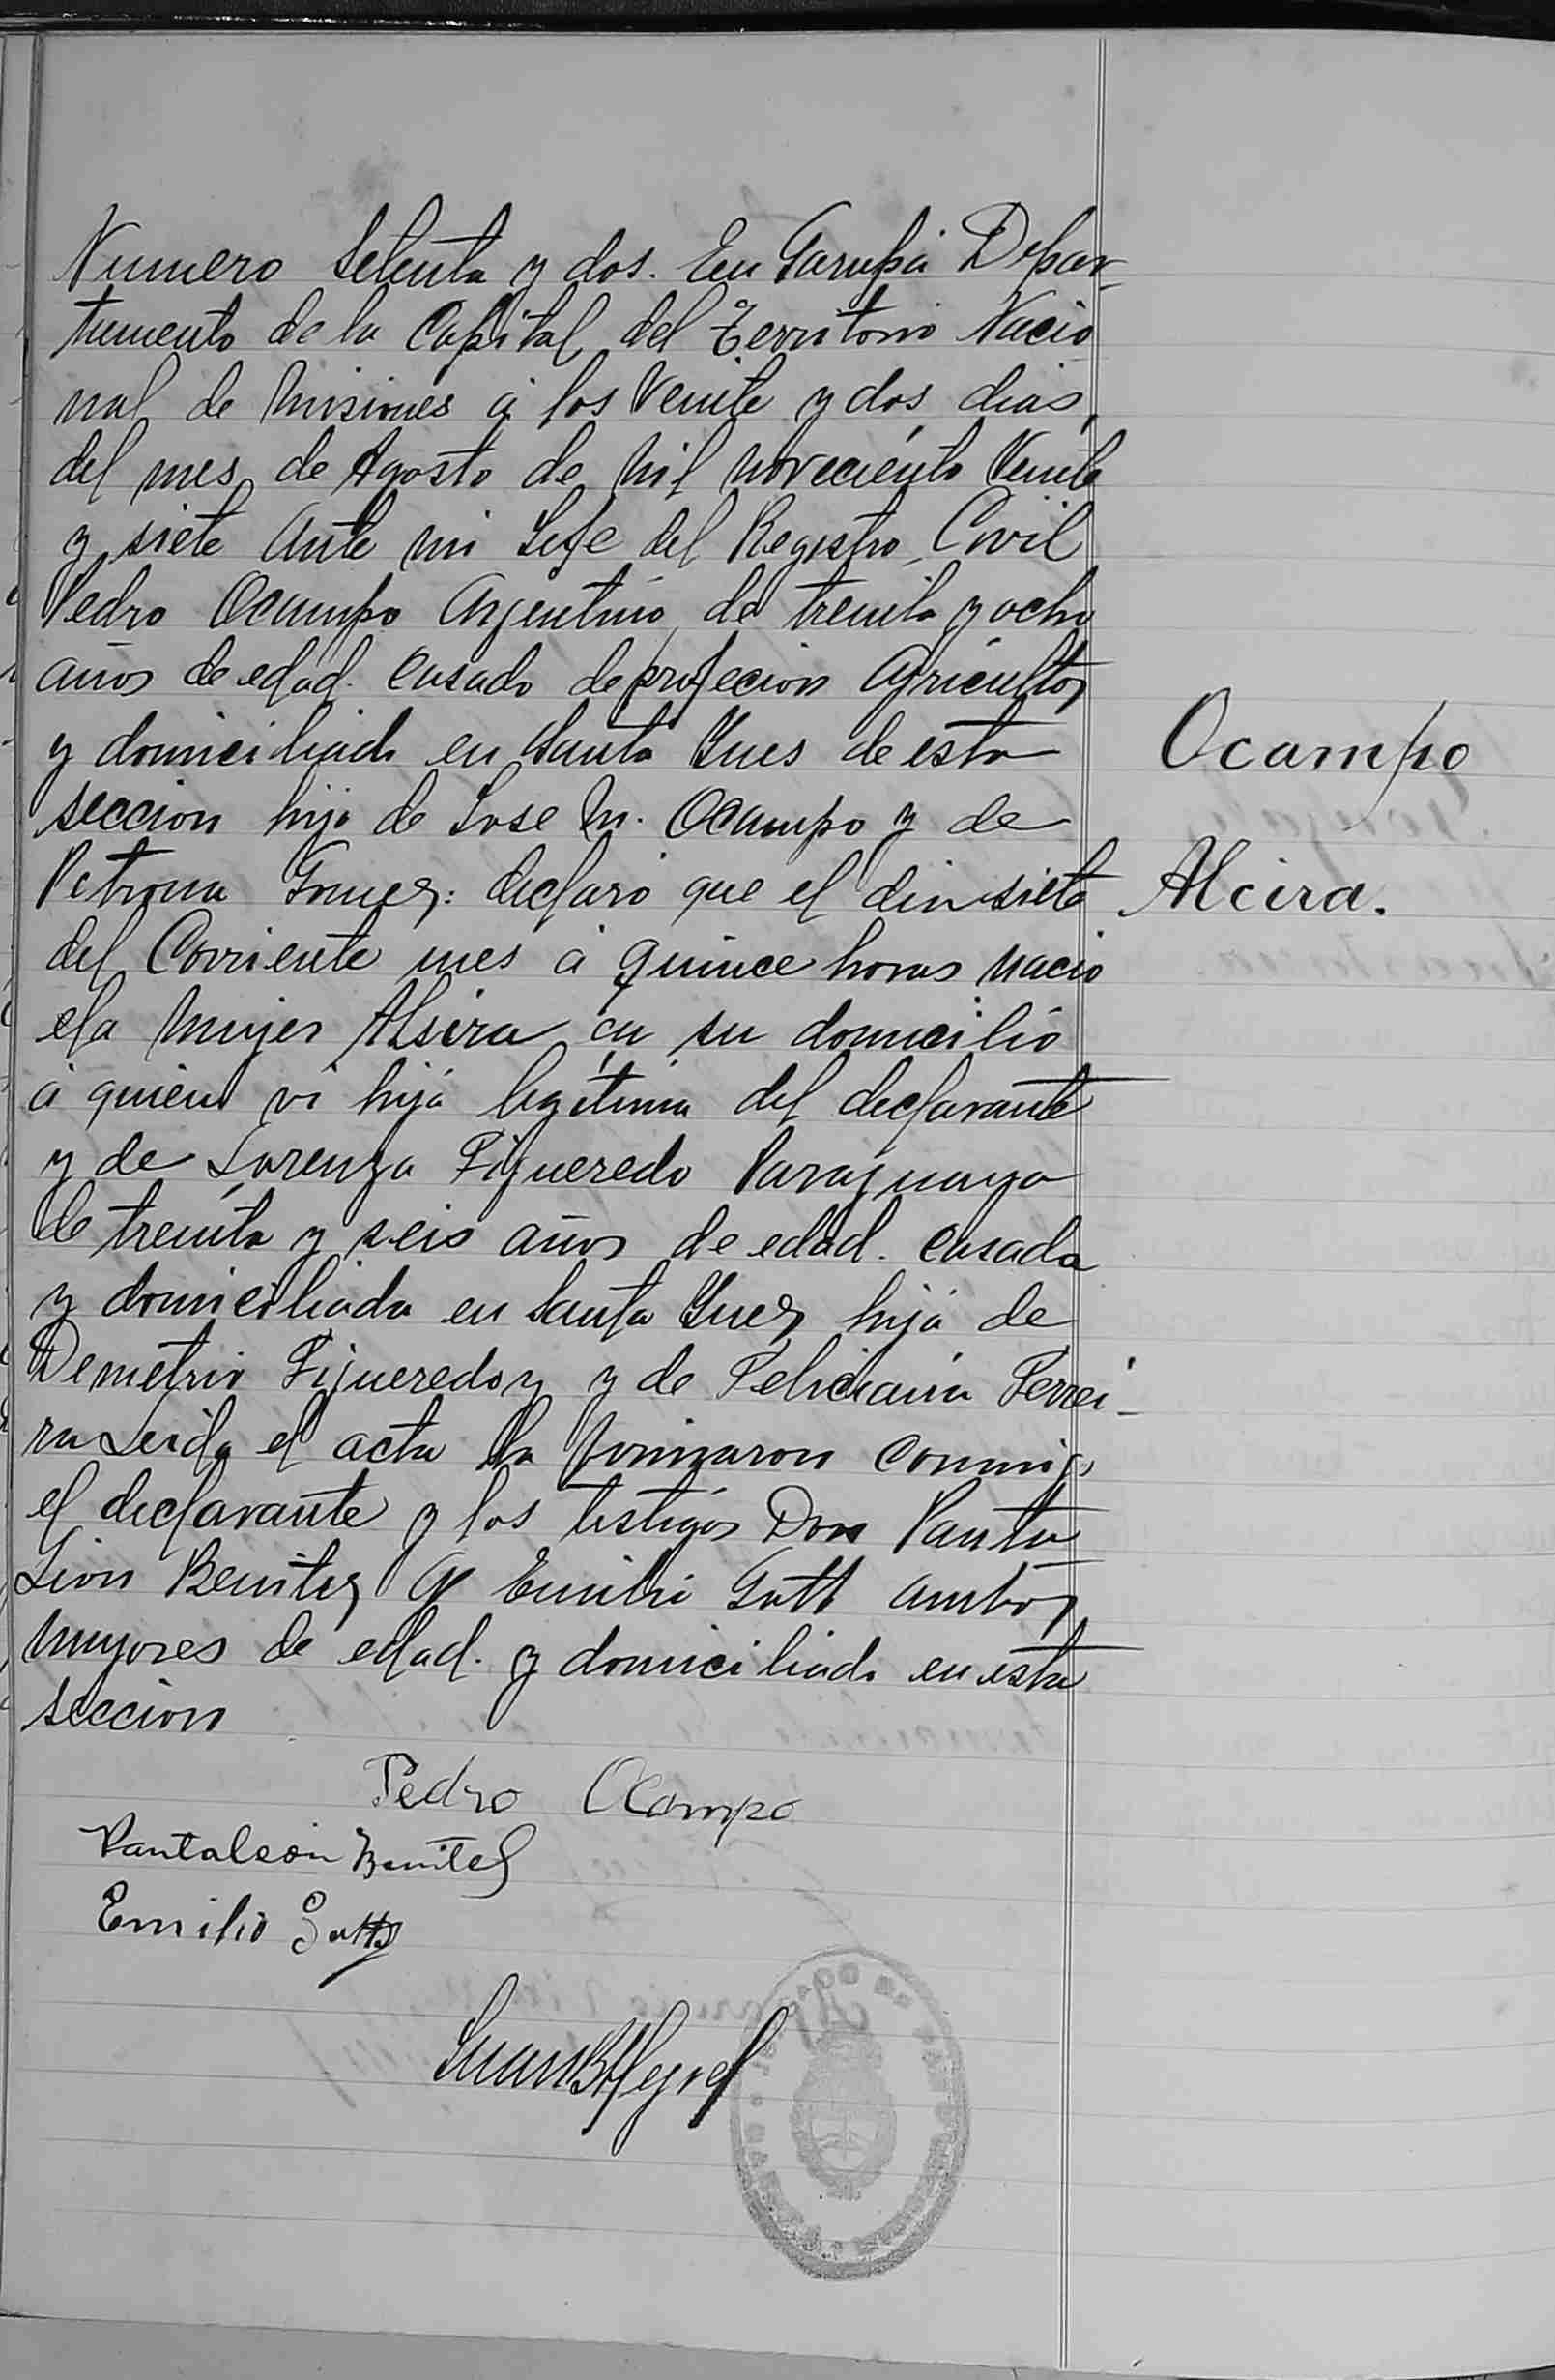 Numero Setenta y dos. En Garupá Depar-
tamento de la Capital del Territorio Nacio
nal de Misiones á los Veinte y dos dias
del mes de Agosto de Mil novecíento Veinte
y siete Ante mi Jefe del Registro Civil
Pedro Ocampo Argentino de treinta y ocho
años de edad. Casado de profecion Agricultor
y domiciliado en Santa Ynes de esta
seccion hijo de Jose M. Ocampo y de
Petrona Gomez: declaró que el dia siete
del Corriente mes á quince horas nacio
ela Mujer Alsira en su domicilio
á quien vi hija legítima del declarante
y de Lorenza Figueredo Paraguaya
de treinta y seis años de edad. casada
y domiciliada en Santa Ynez hija de
Demetrio Figueredo y de Feliciana Ferrei-
ra Leida el acta la firmaron conmigo
el declarante y los testigos Don Panta
Lion Benitez y Emilio Gott ambos
mayores de edad. y domiciliado en esta
seccion
Ocampo
Alcira.
Pedro Ocampo
Pantaleón Benítez
Emilio